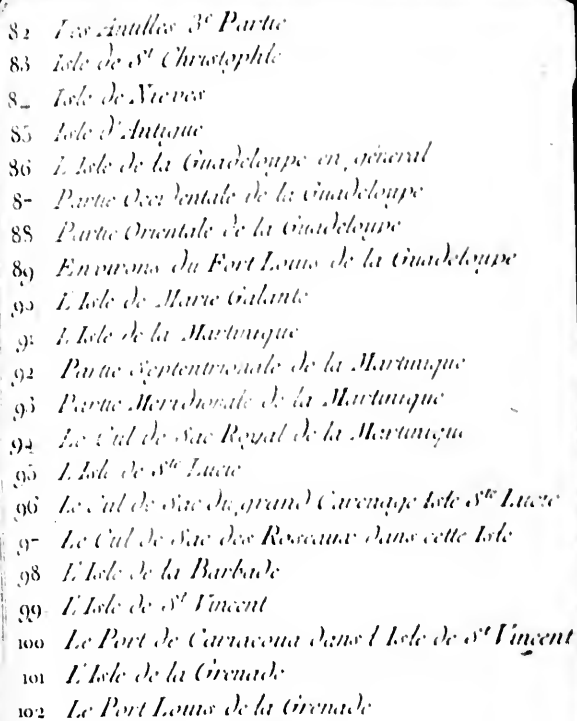 82 Les Antilles 3e Partie
83 Isle de St Christophle
84 Isle de Nieves
85 Isle d'Antigue
86 L'Isle de la Guadeloupe en general
87 Partie Occidentale de la Guadeloupe
88 Partie Orientale de la Guadeloupe
89 Environs du Fort Louis de la Guadeloupe
90 L'Isle de Marie Galante
91 L'Isle de la Martinique
92 Partie Septentrionale de la Martinique
93 Partie Meridionale de la Martinique
94 Le Cul de Sac Royal de la Martinique
95 L'Isle de Ste Lucie
96 Le Cul de Sac du grand Carenage Isle Ste Lucie
97 Le Cul de Sac des Roseaux dans cette Isle
98 L'Isle de la Barbade
99 L'Isle de St Vincent
100 Le Port de Cariacoua dans l'Isle de St Vincent
101 L'Isle de la Grenade
102 Le Port Louis de la Grenade